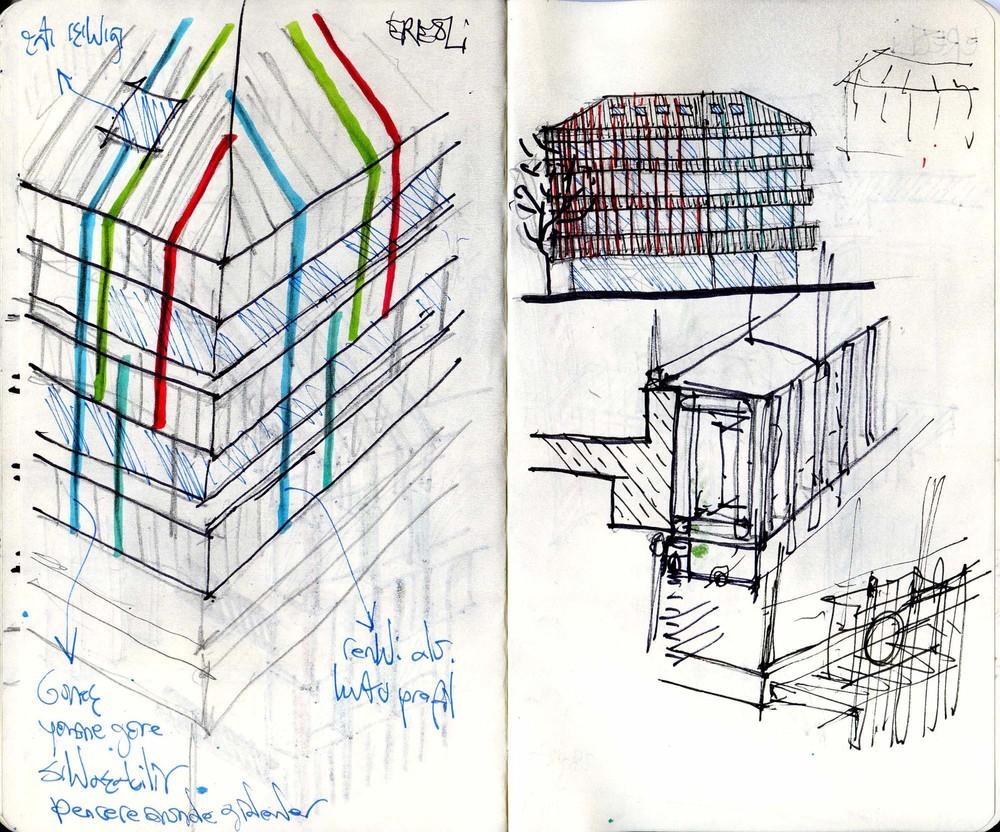 çatı ışıklığı
EREĞLİ
renkli alü.
kutu profil
Güneş
yönüne göre
sıklaşabilir
pencere önünde